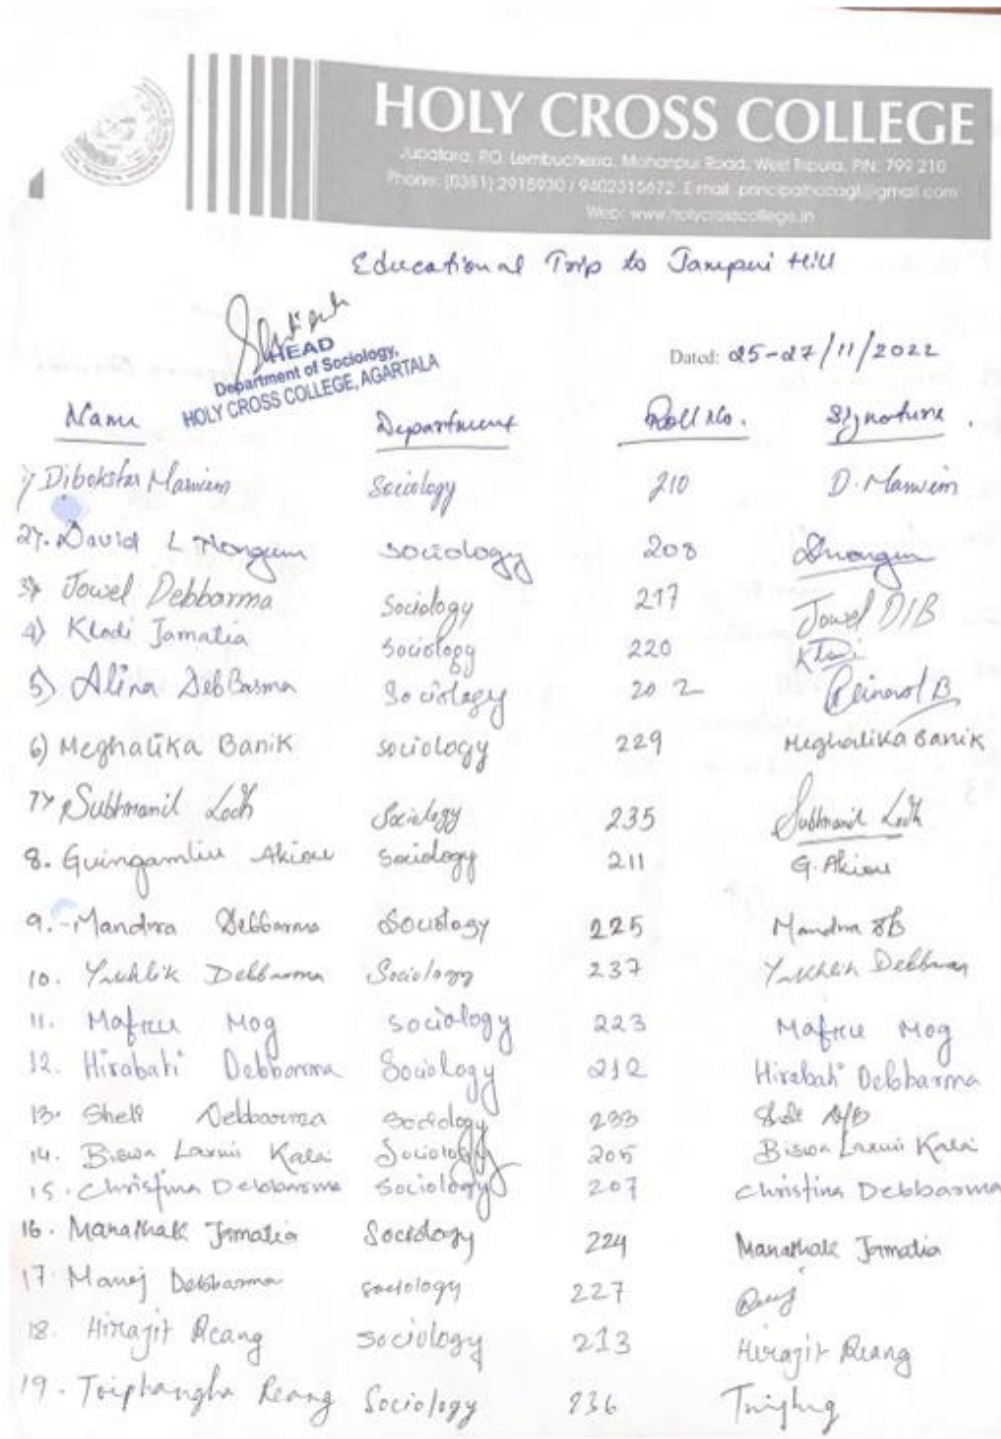 HOLY CROSS COLLEGE
Jubatara, P.O. Lembucherra, Mohanpur Road, West Tripura, PIN: 799 210
Phone: (0381) 2915930 / 9402315672, E-mail: principalhccagt@gmail.com
Web: www.holycrosscollege.in
Educational Trip to Jampui Hill
HEAD
Department of Sociology,
HOLY CROSS COLLEGE, AGARTALA
Dated: 25-27/11/2022
Name Department Roll No. Signature.
1) Dibokstar Marwein Sociology 210 D. Marwein
2). David L Nongrum sociology 208
3) Jowel Debbarma Sociology 217 Jowel D/B
4) Kladi Jamatia Sociology 220
5) Alina DebBarma Sociology 202
6) Meghalika Banik sociology 229 Meghalika Banik
7) Subhranil Lodh Sociology 235 Subhranil Lodh
8. Guingamliu Akiou Sociology 211 G. Akiou
9. Mandra Debbarma Sociology 225 Mandra DB
10. Debbarma Sociology 237 Debbarma
11. Mog sociology 223 Mog
12. Hirabati Debbarma Sociology 212 Hirabati Debbarma
13. Sheli Debbarma Sociology 233 Sheli D/B
14. Biswa Laxmi Kalai Sociology 205 Biswa Laxmi Kalai
15. Christina Debbarma Sociology 207 Christina Debbarma
16. Manathak Jamatia Sociology 224 Manathak Jamatia
17 Manoj Debbarma sociology 227
18. Hirajit Reang sociology 213 Hirajit Reang
19. Toiphangha Reang Sociology 236